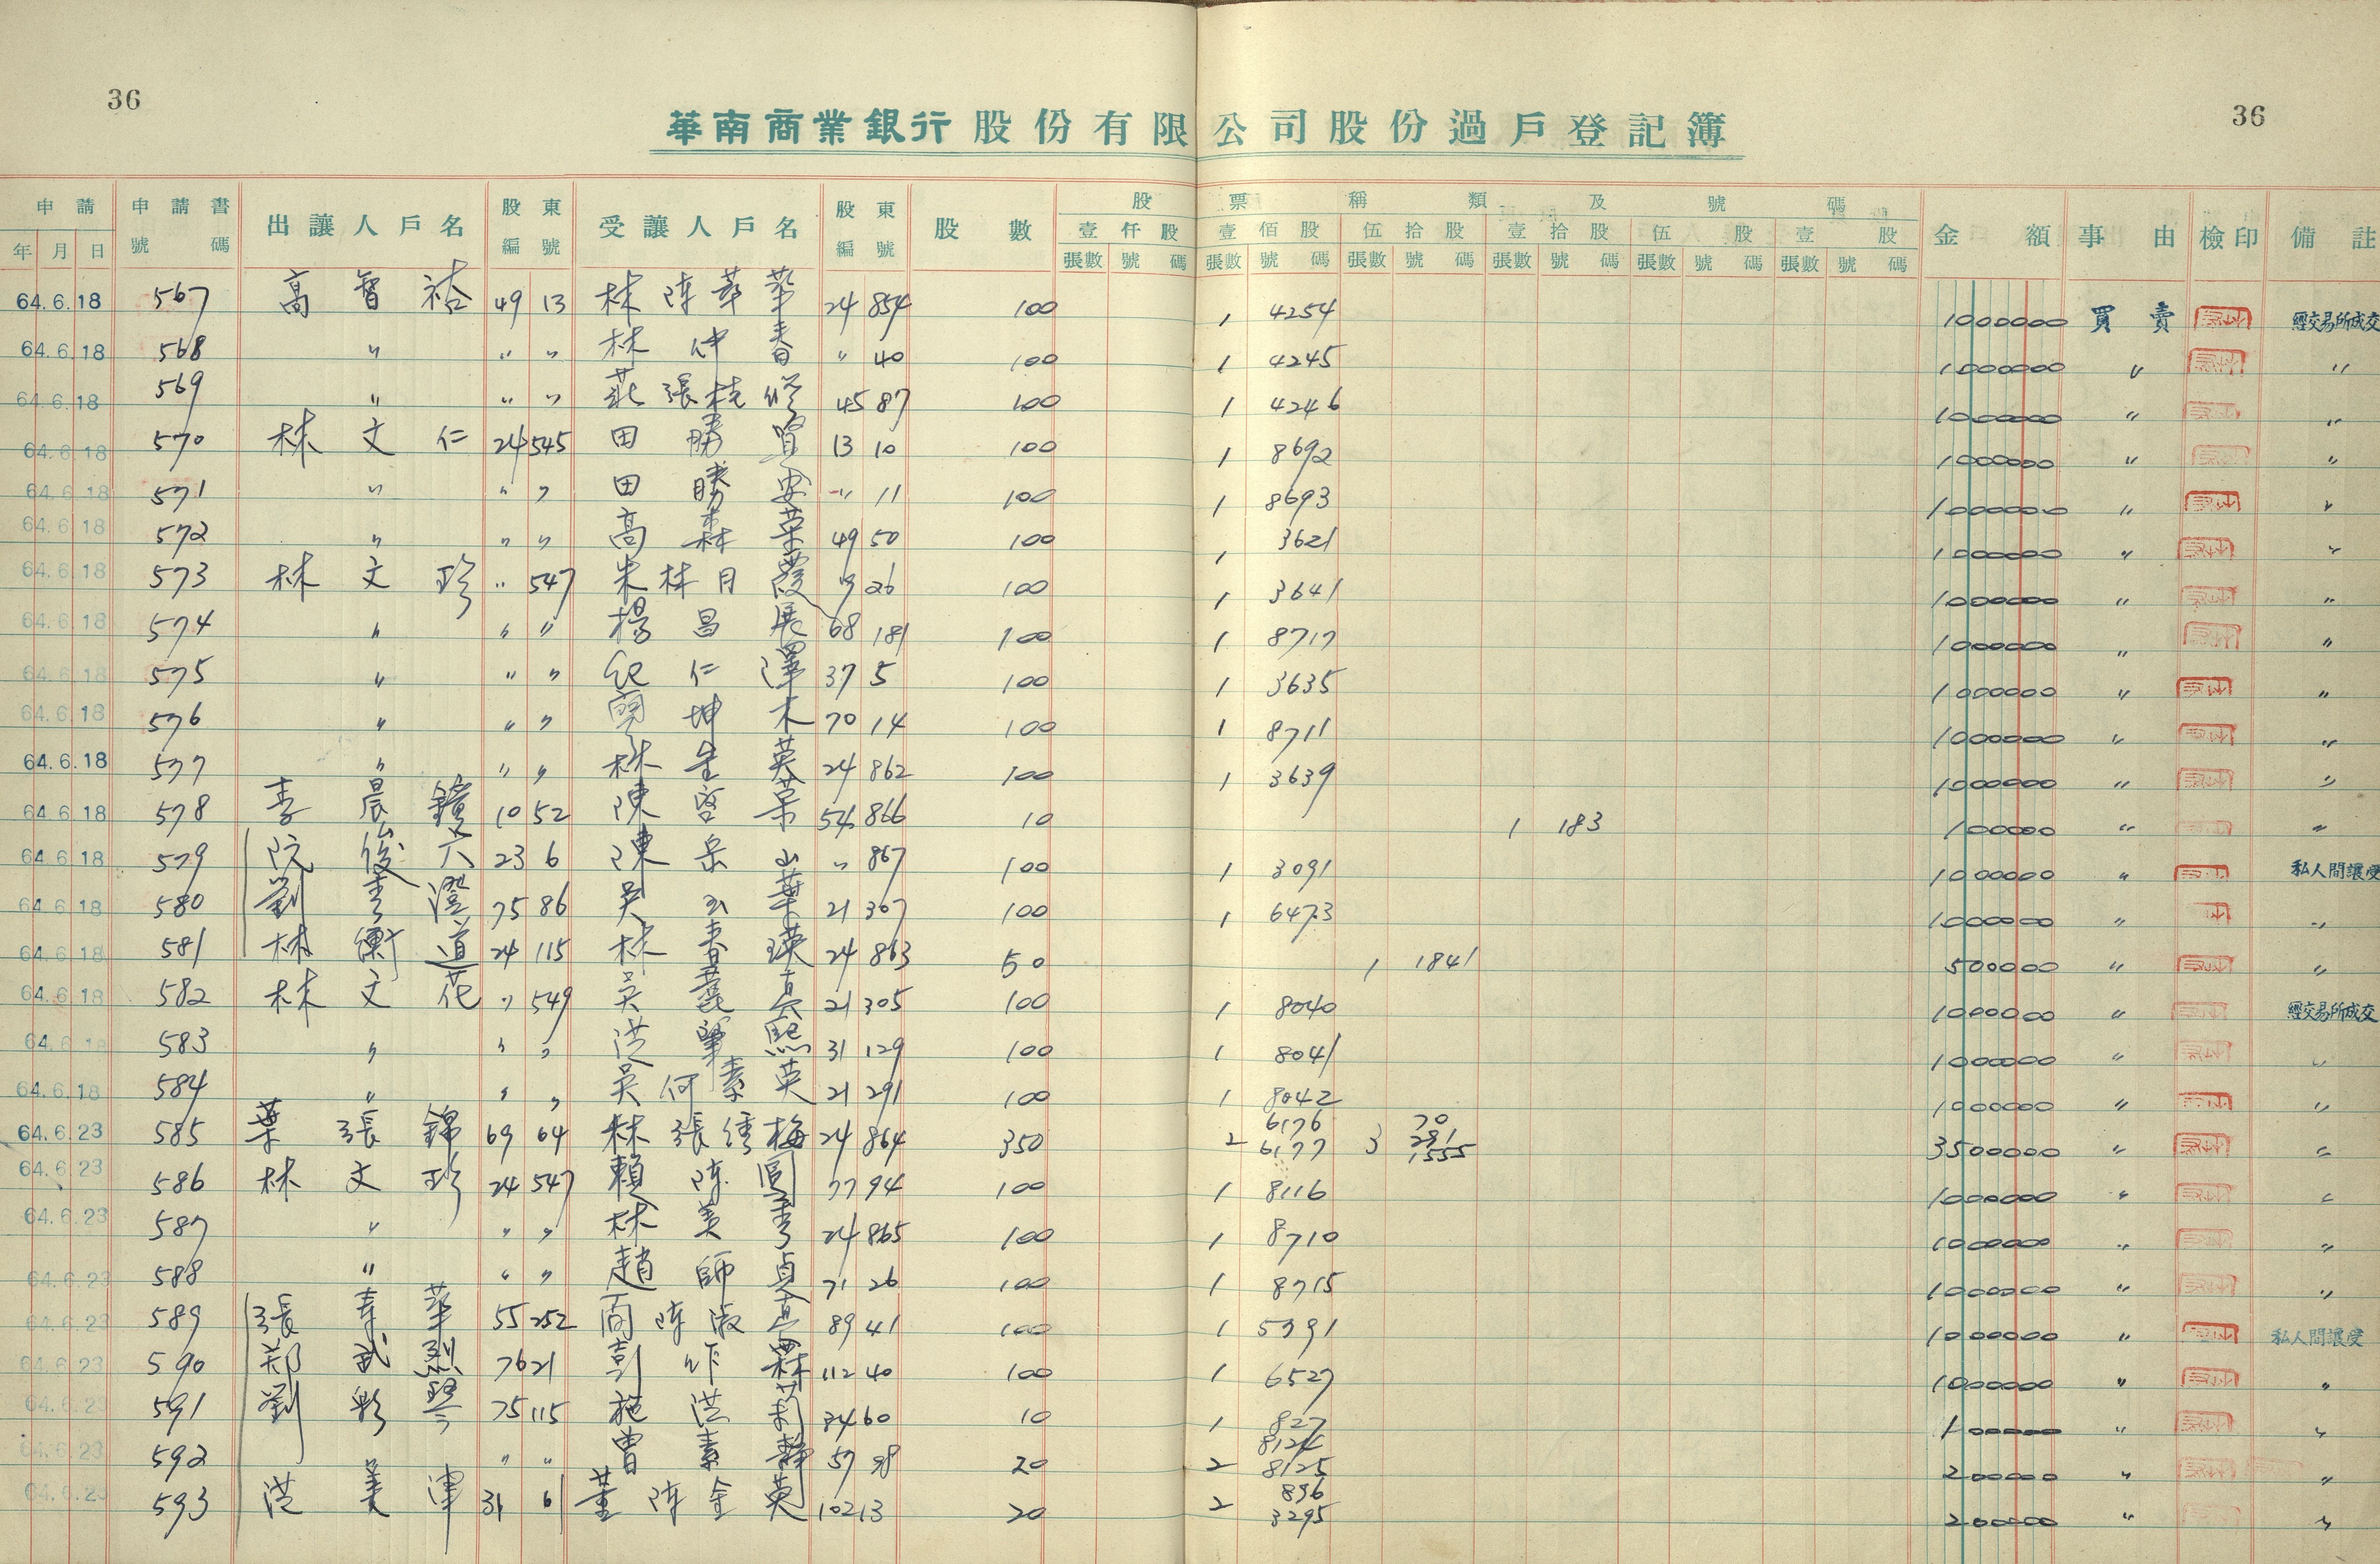 36
36
華南商業銀行股份有限公司股份過戶登記簿
申請 申請書 出讓人戶名 股東 受讓人戶名 股東 股數 股票稱類及號碼 金額 事由 檢印 備註
年 月 日 號碼 編號 編號 壹仟股 壹佰股 伍拾股 壹拾股 伍股 壹股
張數 號碼 張數 號碼 張數 號碼 張數 號碼 張數 號碼 張數 號碼
64.6.18 567 高智祐 49 13 林陳華 24 854 100 1 4254 1000000 買賣 經交易所成交
64.6.18 568 〃 〃 〃 林仲春 〃 40 100 1 4245 1000000 〃 〃
64.6.18 569 〃 〃 〃 張桂 45 87 100 1 4246 1000000 〃 〃
64.6.18 570 林文仁 24 545 田勝 13 10 100 1 8692 1000000 〃 〃
64.6.18 571 〃 〃 〃 田勝安 〃 11 100 1 8693 1000000 〃 〃
64.6.18 572 〃 〃 〃 高森榮 49 50 100 1 3621 1000000 〃 〃
64.6.18 573 林文珍 〃 547 朱林月霞 9 26 100 1 3641 1000000 〃 〃
64.6.18 574 〃 〃 〃 楊昌展 68 181 100 1 8717 1000000 〃 〃
64.6.18 575 〃 〃 〃 紀仁澤 37 5 100 1 3635 1000000 〃 〃
64.6.18 576 〃 〃 〃 坤木 70 14 100 1 8711 1000000 〃 〃
64.6.18 577 〃 〃 〃 林生英 24 862 100 1 3639 1000000 〃 〃
64.6.18 578 李晨鐘 10 52 陳啓榮 54 866 10 1 183 100000 〃 〃
64.6.18 579 阮俊六 23 6 陳岳山 〃 867 100 1 3091 1000000 〃 私人間讓受
64.6.18 580 劉秀澄 75 86 吳玉葉 21 307 100 1 6473 1000000 〃 〃
64.6.18 581 林衡道 24 115 林春瑛 24 863 50 1 1841 500000 〃 〃
64.6.18 582 林文花 〃 549 吳真 21 305 100 1 8040 1000000 〃 經交易所成交
64.6.18 583 〃 〃 〃 洪肇熙 31 129 100 1 8041 1000000 〃 〃
64.6.18 584 〃 〃 〃 吳何素英 21 291 100 1 8042 1000000 〃 〃
64.6.23 585 葉張錦 69 64 林張綉梅 24 864 350 2 6176 6177 3 70 281 1555 3500000 〃 〃
64.6.23 586 林文珍 24 547 賴陳圓 77 94 100 1 8116 1000000 〃 〃
64.6.23 587 〃 〃 〃 林美秀 24 865 100 1 8710 1000000 〃 〃
64.6.23 588 〃 〃 〃 趙師貞 71 26 100 1 8715 1000000 〃 〃
64.6.23 589 張華 55 252 陳淑真 89 41 100 1 5391 1000000 〃 私人間讓受
64.6.23 590 郑武烈 76 21 彭作霖 112 40 100 1 6527 1000000 〃 〃
64.6.23 591 劉彩琴 75 115 施洪莉 34 60 10 1 827 100000 〃 〃
64.6.23 592 〃 〃 曹素靜 57 98 20 2 8124 8125 200000 〃 〃
64.6.23 593 洪美津 31 61 董陳金英 102 13 20 2 896 3295 200000 〃 〃